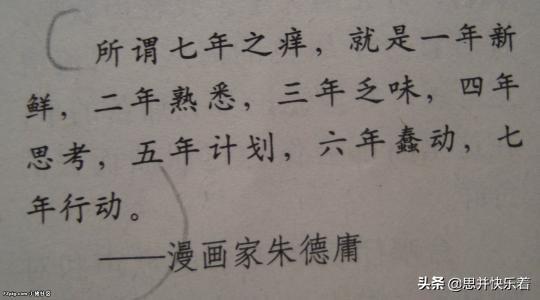 所谓七年之痒，就是一年新
鲜，二年熟悉，三年乏味，四年
思考，五年计划，六年蠢动，七
年行动。
——漫画家朱德庸
头条 @思并快乐着